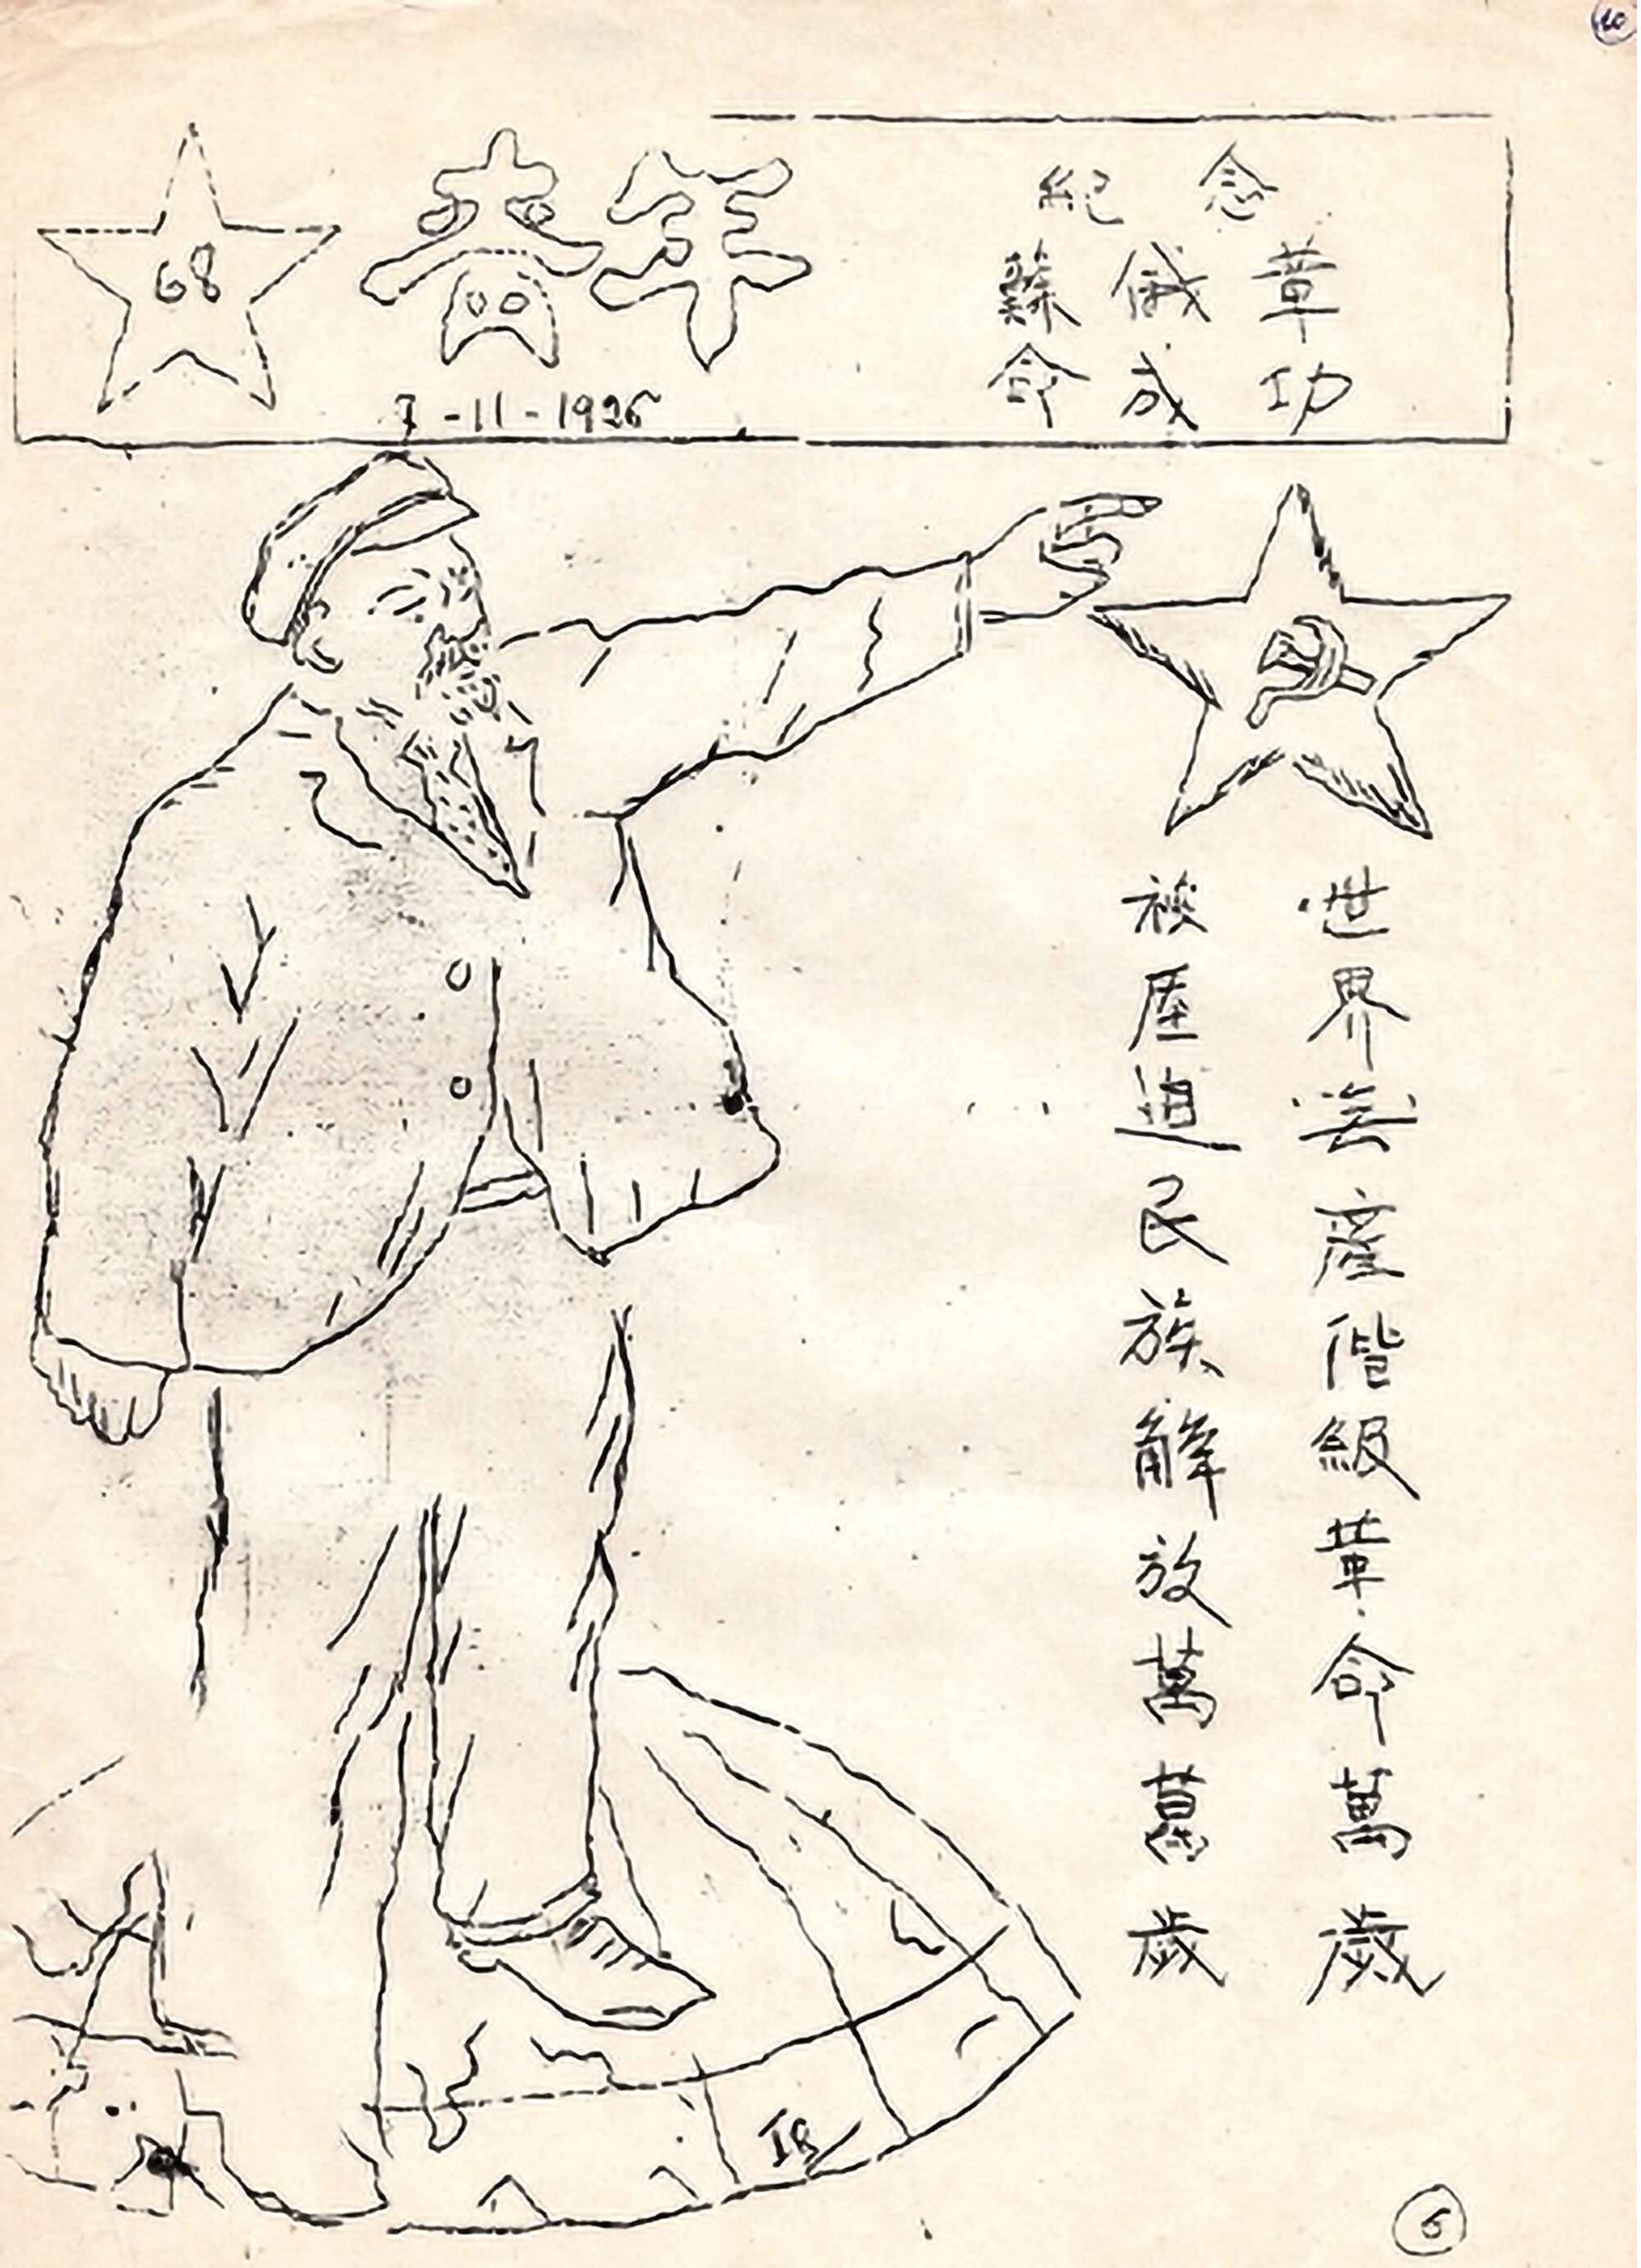 68
青年
7-11-1926
紀念
蘇俄革
命成功
世界無產偕級革命萬歲
被壓迫民族解放萬萬歲
6